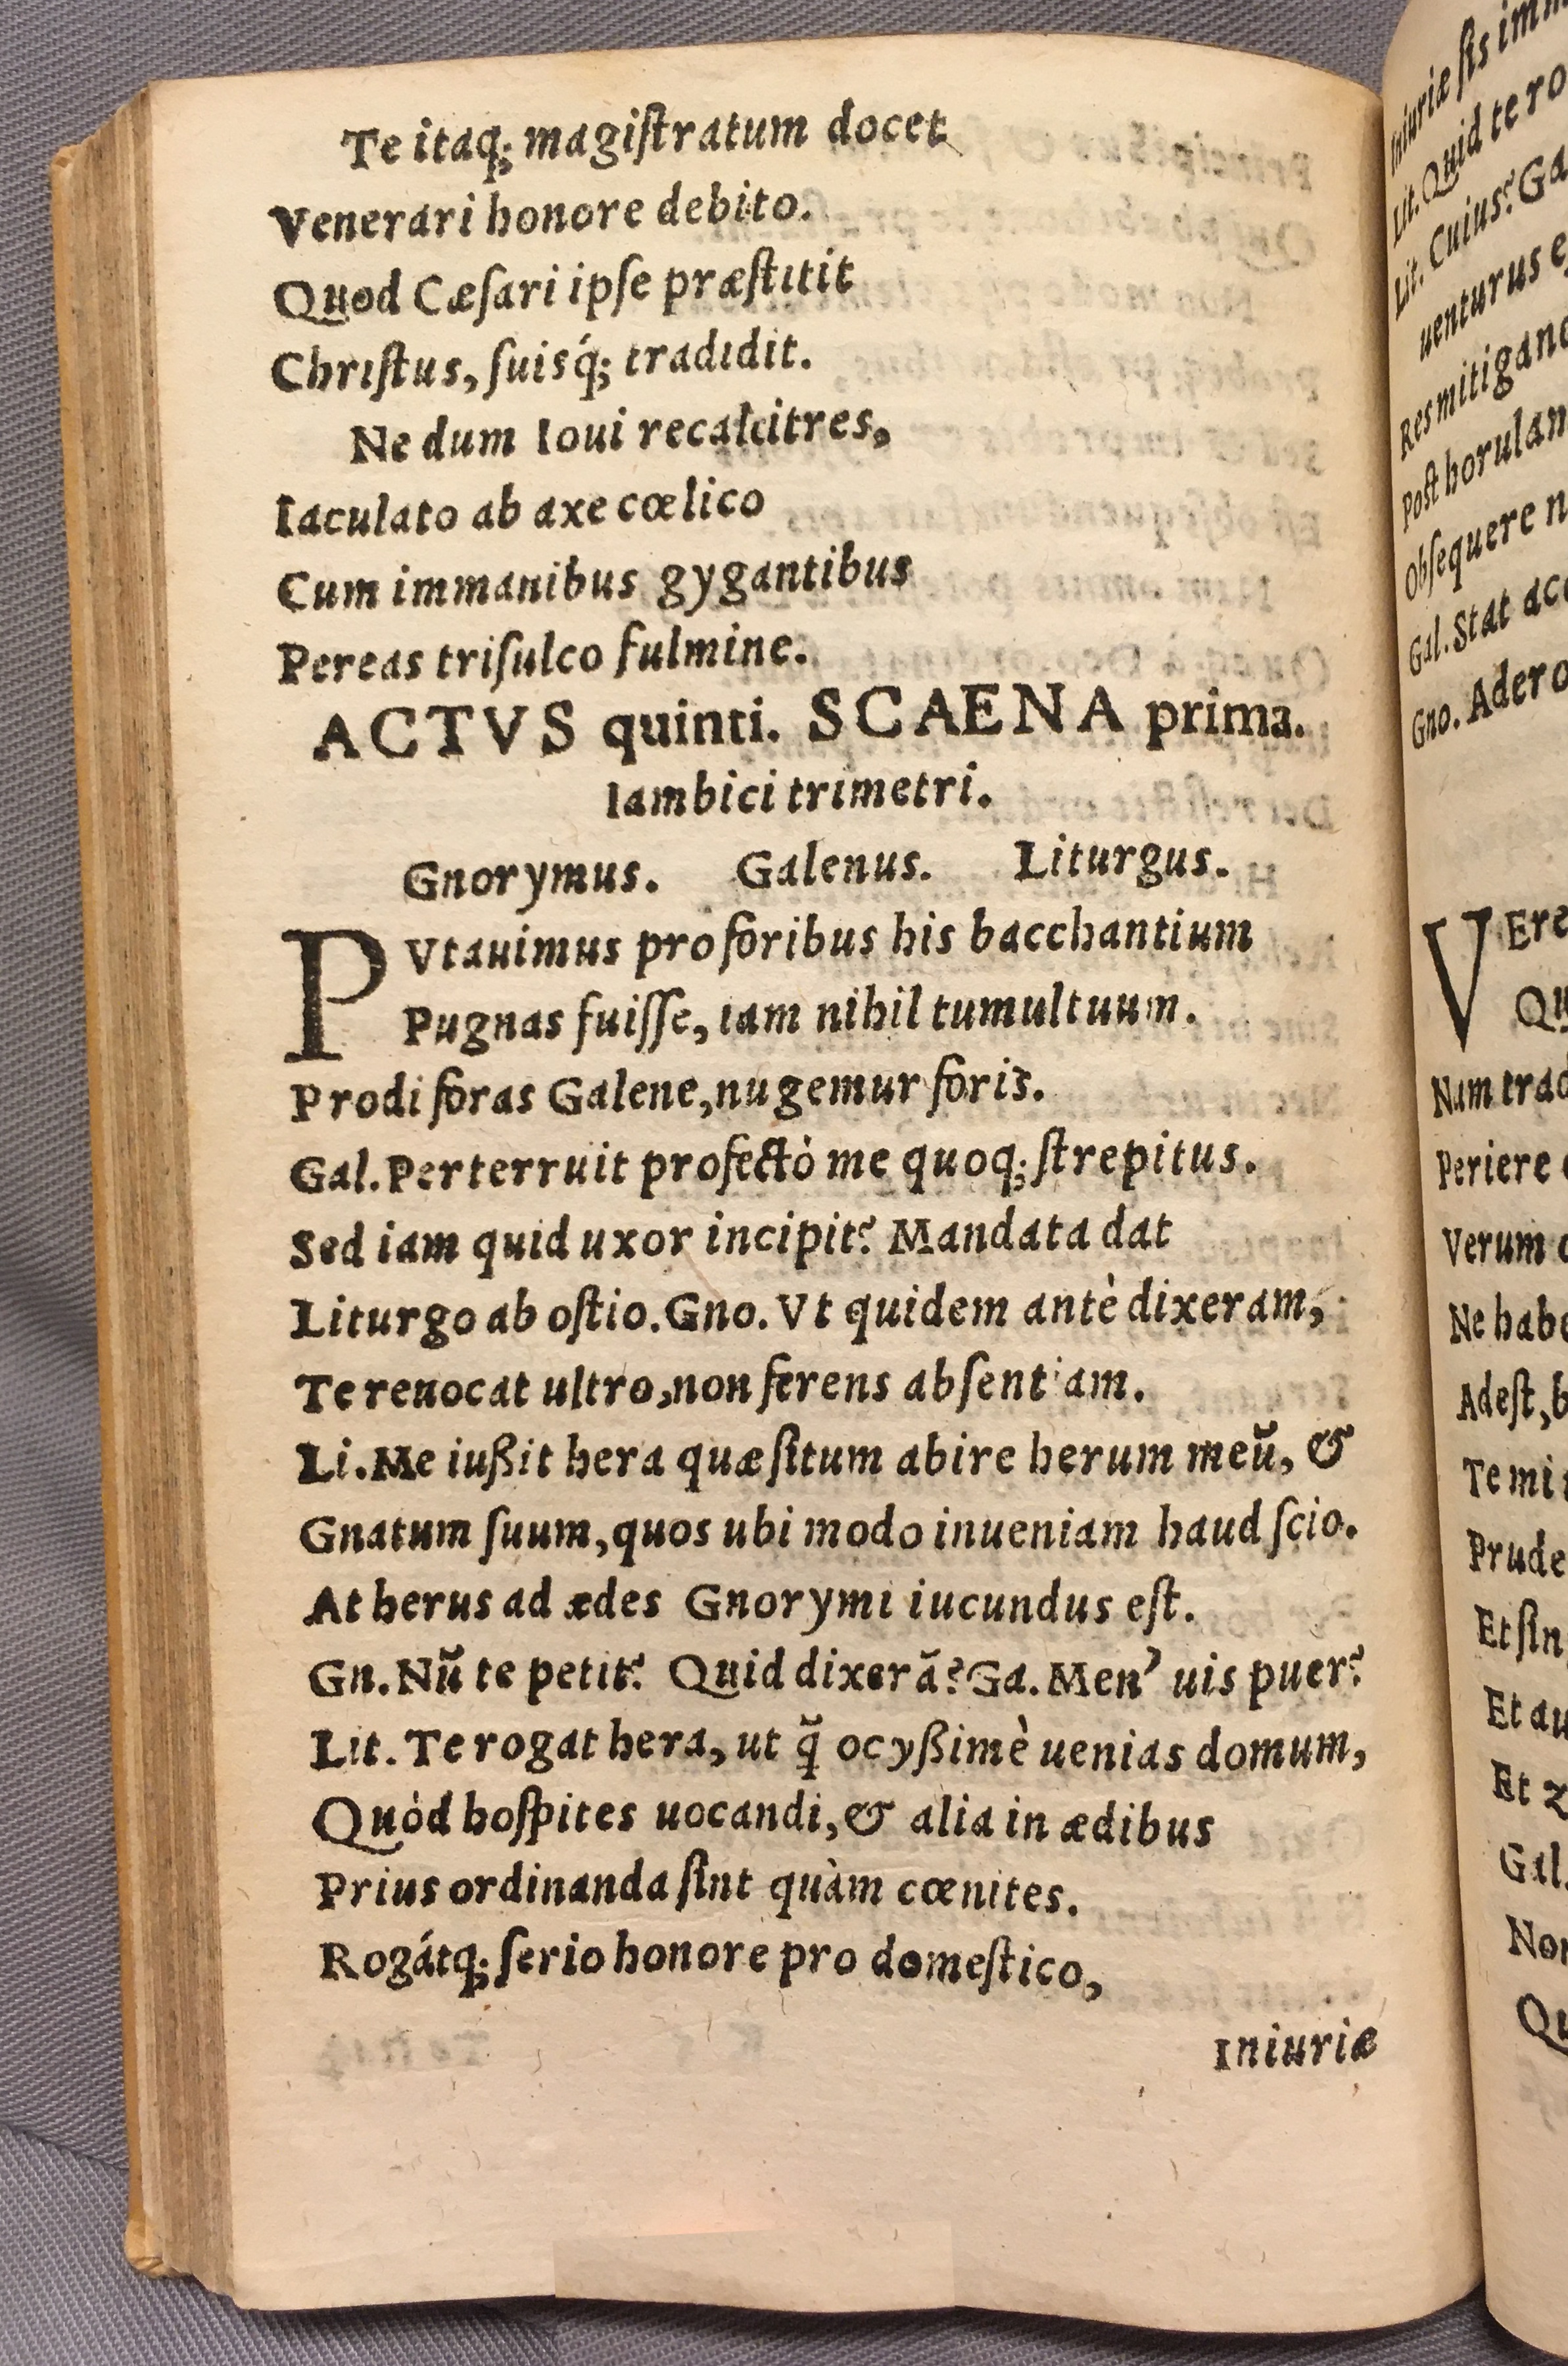 Te itaq; magiſtratum docet
Venerari honore debito.
Quod Cæſari ipſe præſtitit
Chriſtus, ſuisq́; tradidit.
Ne dum Ioui recalcitres,
Iaculato ab axe cœlico
Cum immanibus gygantibus
Pereas triſulco fulmine.
ACTVS quinti. SCAENA prima.
Iambici trimetri.
Gnorymus. Galenus. Liturgus.
PVtauimus pro foribus his bacchantium
Pugnas fuiſſe, iam nihil tumultuum.
Prodi foras Galene, nugemur foris.
Gal. Perterruit profectò me quoq; ſtrepitus.
Sed iam quid uxor incipit? Mandata dat
Liturgo ab oſtio. Gno. Vt quidem antè dixeram,
Te reuocat ultro, non ferens abſentiam.
Li. Me iußit hera quæſitum abire herum meũ, &
Gnatum ſuum, quos ubi modo inueniam haud ſcio.
At herus ad ædes Gnorymi iucundus eſt.
Gn. Nũ te petit? Quid dixerã? Ga. Men' uis puer?
Lit. Te rogat hera, ut q̃ ocyßimè uenias domum,
Quòd hoſpites uocandi, & alia in ædibus
Prius ordinanda ſint quàm cœnites.
Rogátq; ſerio honore pro domeſtico,
Iniuriæ
Iniuriæ ſis
Lit. Quid te
Lit. Cuius?
uenturus
Poſt
Obſequere
Gal. Stat
Gno. Adero
Periere
Verum
Adeſt,
Te mi
Gal.